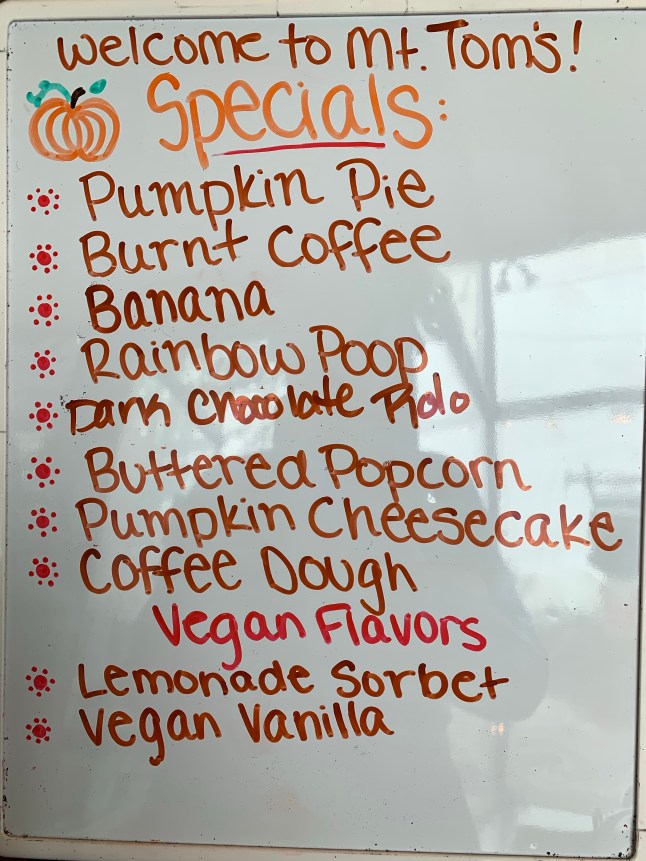 Welcome to Mt. Tom's!
Specials:
Pumpkin Pie
Burnt Coffee
Banana
Rainbow Poop
Dark Chocolate Rolo
Buttered Popcorn
Pumpkin Cheesecake
Coffee Dough
Vegan Flavors
Lemonade Sorbet
Vegan Vanilla